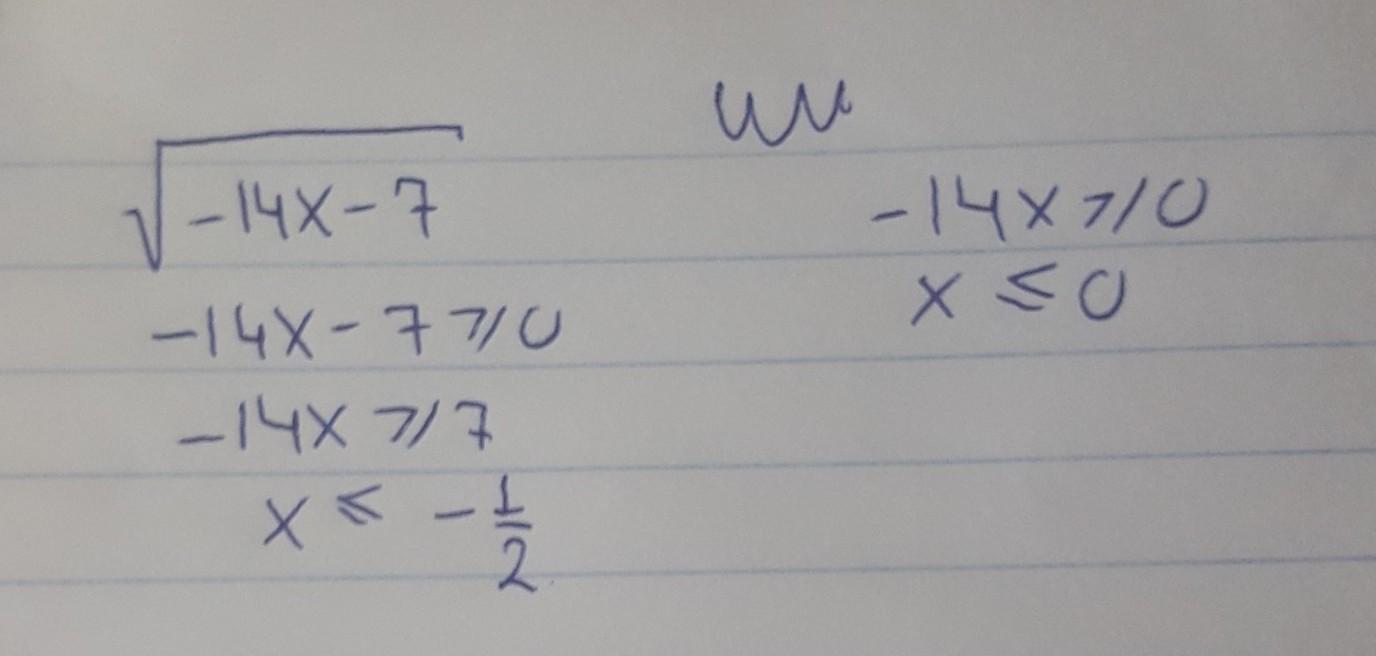 √(-14x-7)
-14x-7⩾0
-14x⩾7
x⩽-1/2
или
-14x⩾0
x⩽0